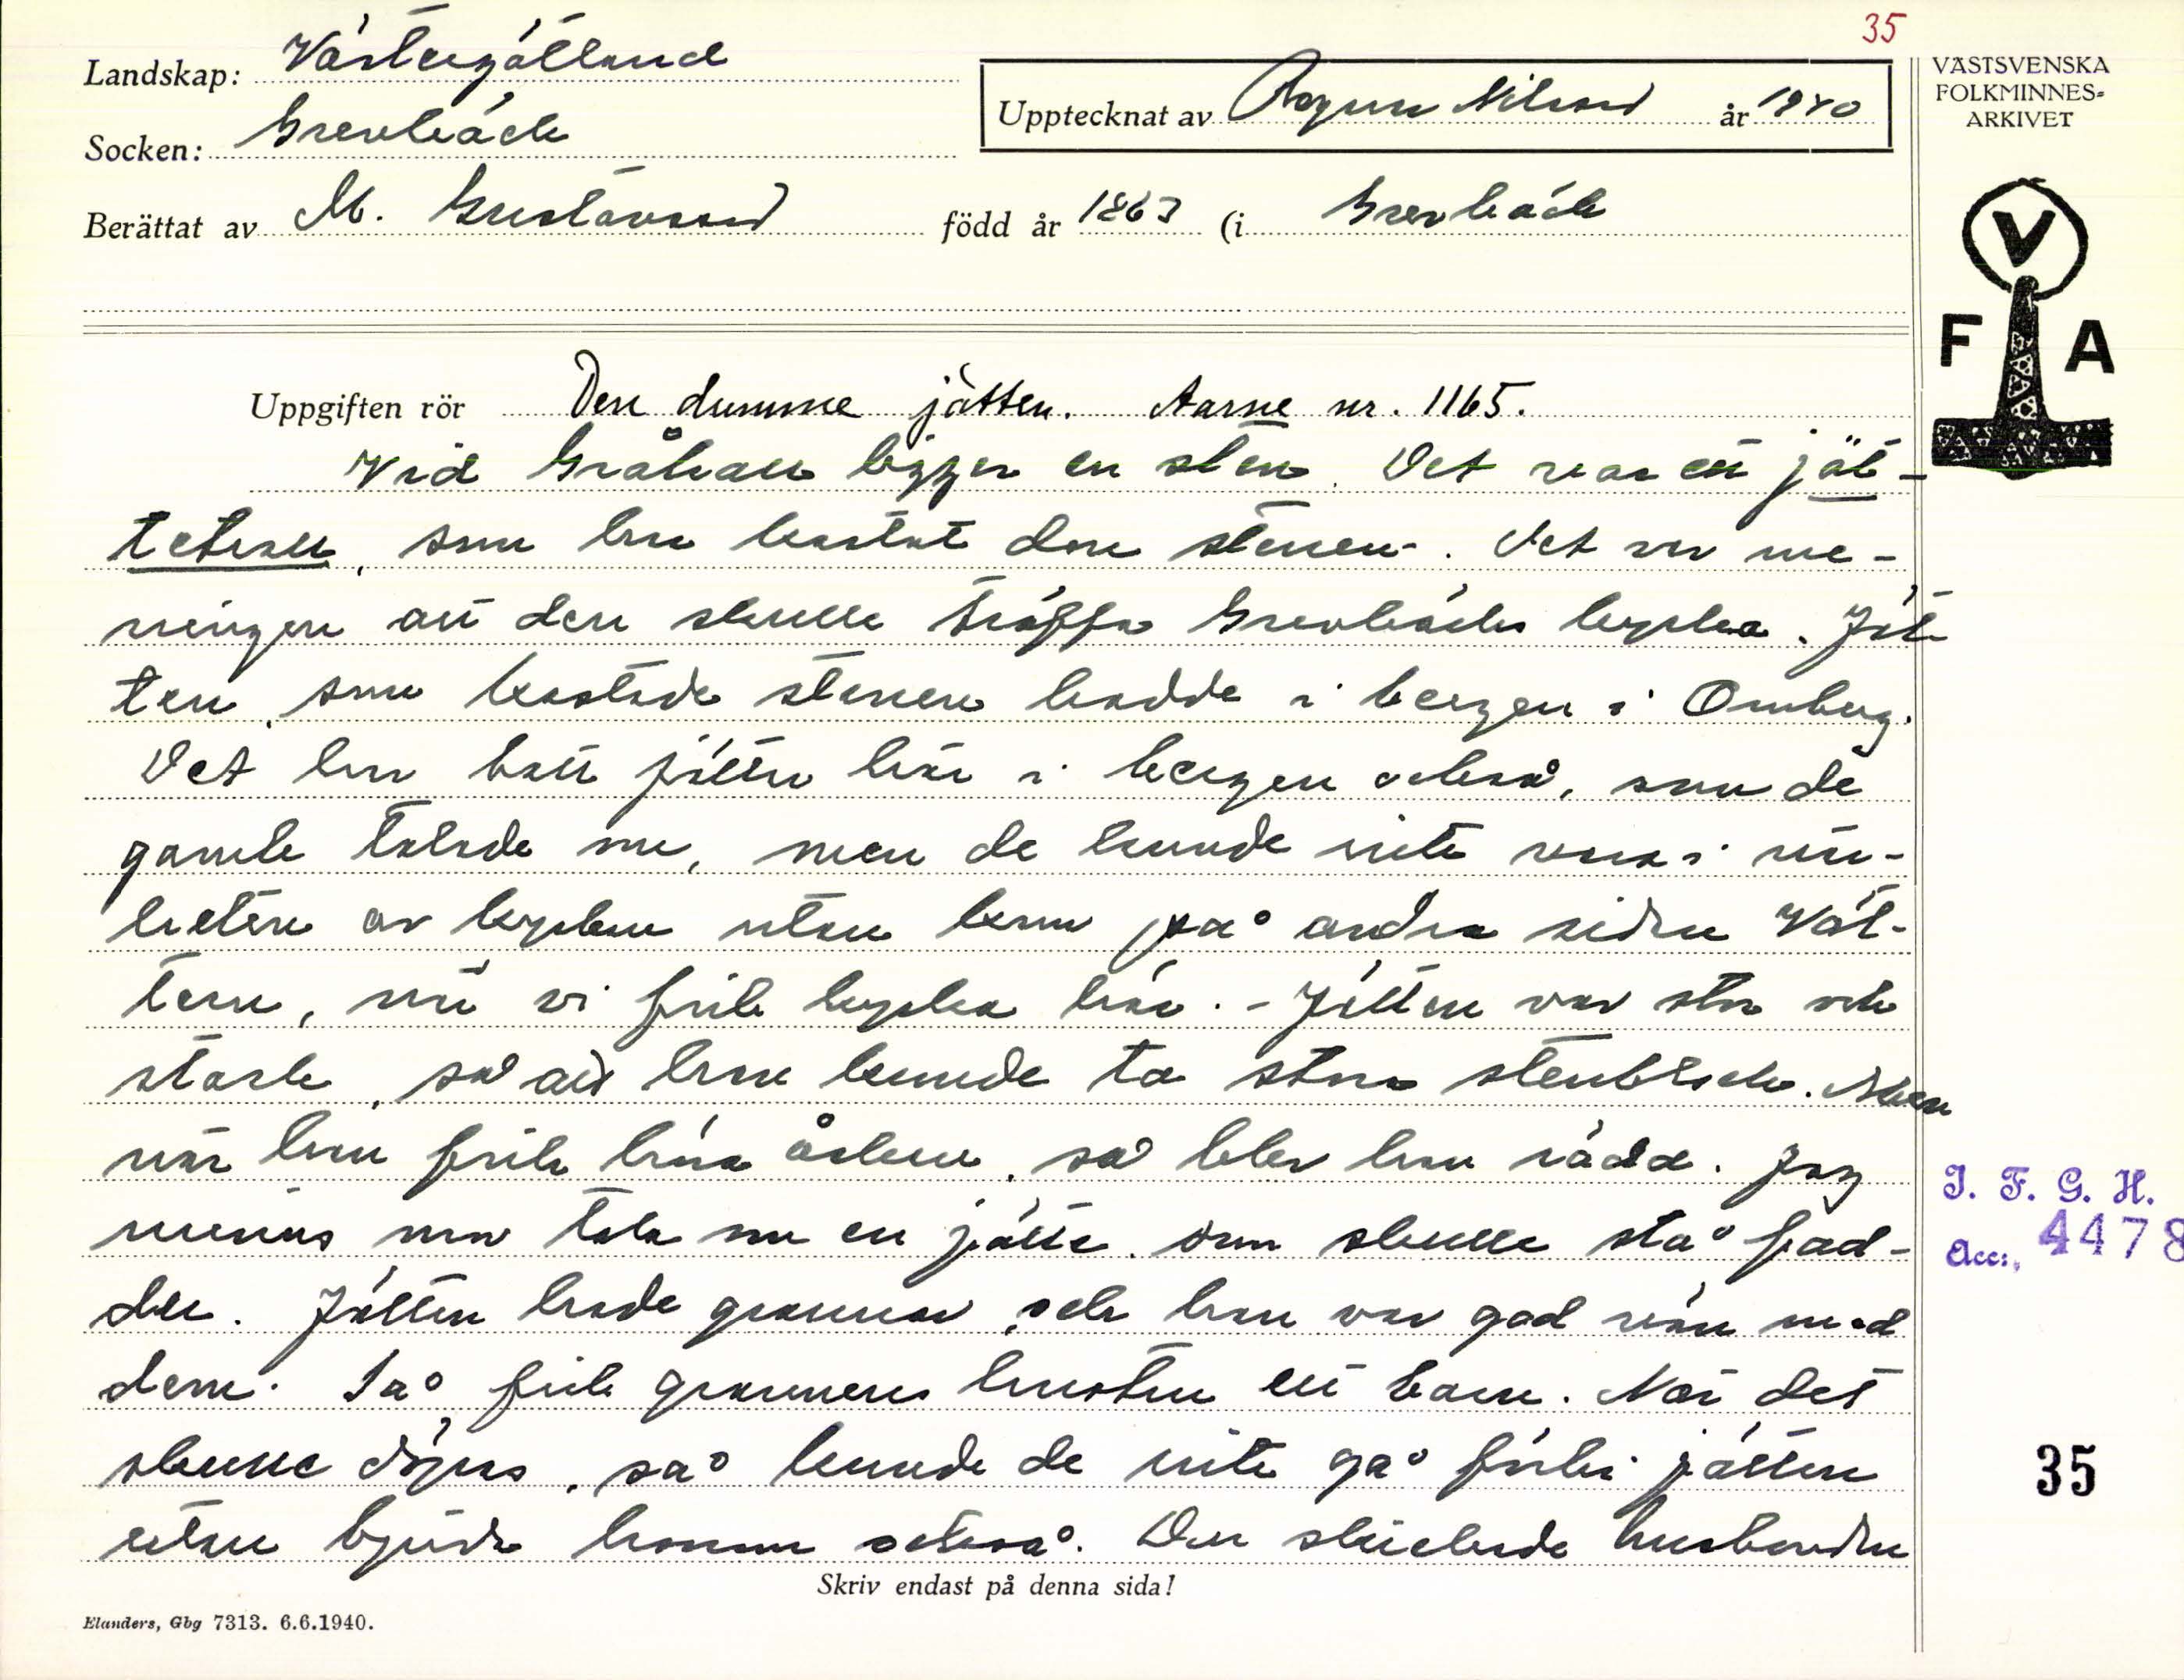 35
Landskap: Västergötland
Socken: Grevbäck
Berättat av M. Gustavsson född år 1863 (i Grevbäck
Upptecknat av Ragnar Nilsson år 1940
VÄSTSVENSKA
FOLKMINNES=
ARKIVET
V
F A
Uppgiften rör Den dumme jätten. Aarne nr. 1165.
Vid Gråhall ligger en sten. Det var ett jät-
tekast, som han kastat den stenen. Det var me-
ningen att den skulle träffa Grevbäcks kyrka. Jät
ten, som kastade stenen hadde i bergen i Omberg.
Det har bott jättar här i bergen också, som de
gamle talade om, men de kunde inte vara i när-
heten av kyrkan utan kom på andra sidan Vät-
tern, när vi fick kyrka här. - Jätten var stor och
stark, så att han kunde ta stora stenblock. Men
när han fick höra åskan, så blev han rädd. Jag
minns mor tala om en jätte, som skulle stå fad-
der. Jätten hade grannar, och han var god vän med
dem. Så fick grannens hustru ett barn. När det
skulle döpas, så kunde de inte gå förbi jätten
utan bjuda honom också. Den skickade husbonden
Skriv endast på denna sida!
Elanders, Gbg 7313. 6.6.1940.
I. F. G. H.
Acc:, 4478
35